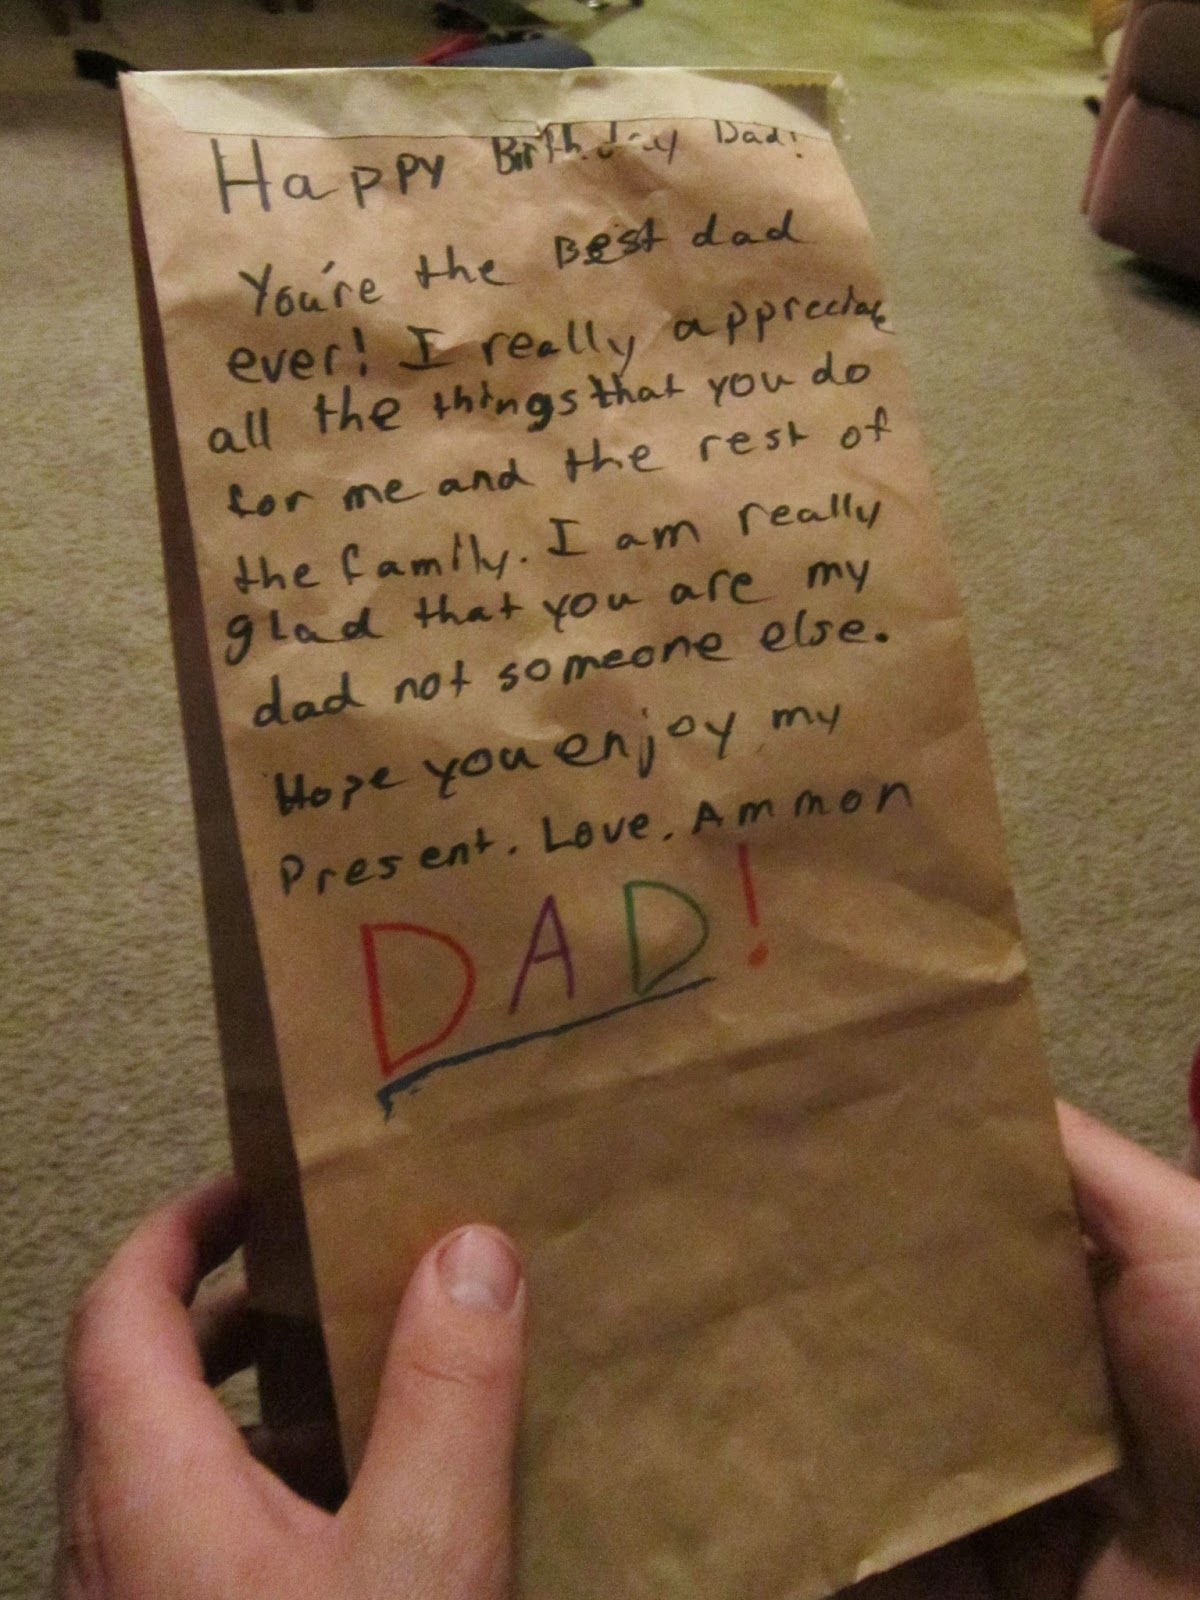 Happy Birthday Dad!
You're the Best dad
ever! I really appreciate
all the things that you do
for me and the rest of
the family. I am really
glad that you are my
dad not someone else.
Hope you enjoy my
Present. Love, Ammon
DAD!